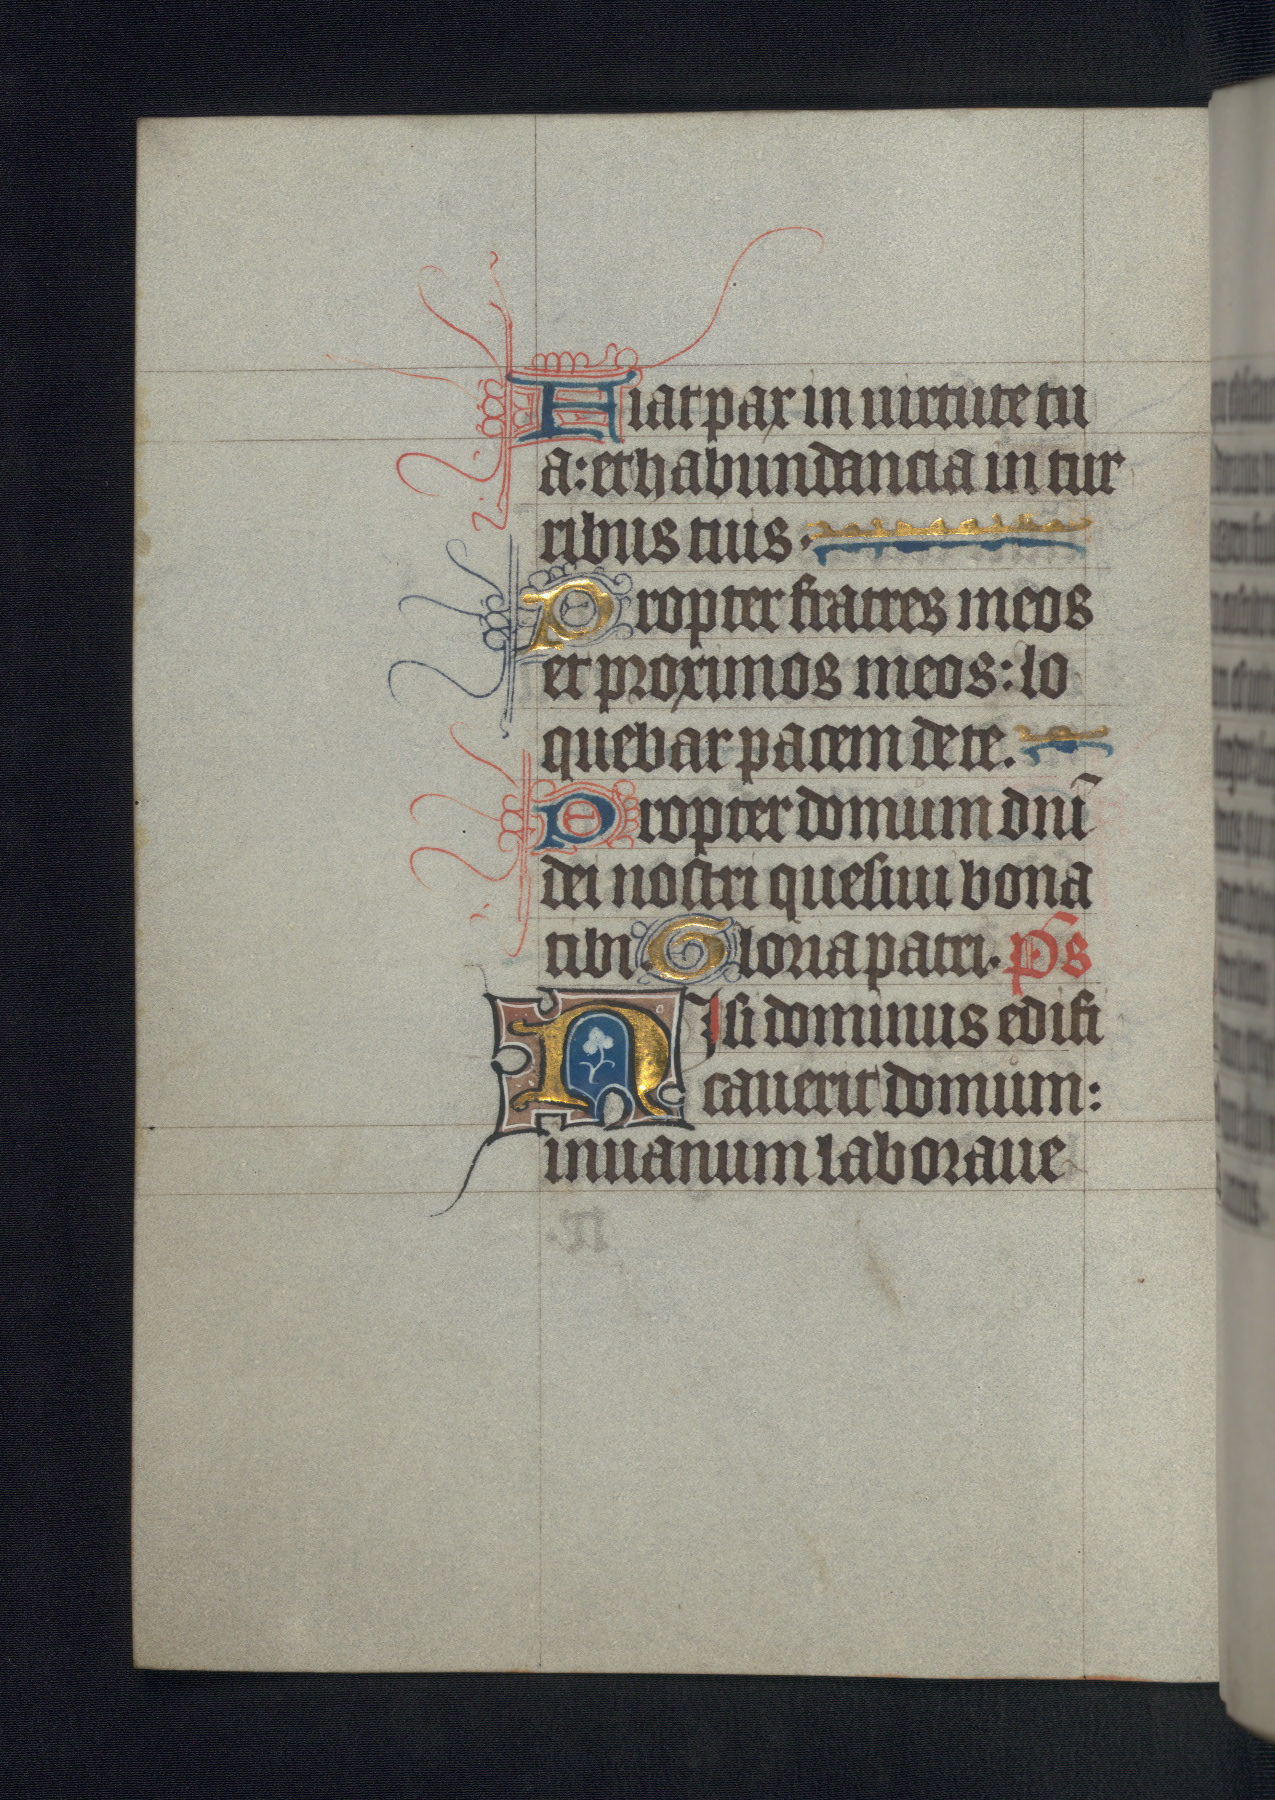 Fiat pax in uirtute tu
a: et habundancia in tur
ribus tuis.
Propter fratres meos
et proximos meos: lo
quebar pacem de te.
Propter domum dn̄i
dei nostri quesiui bona
tibi. Gloria patri. Ps
Nisi dominus edifi
cauerit domum:
inuanum laboraue